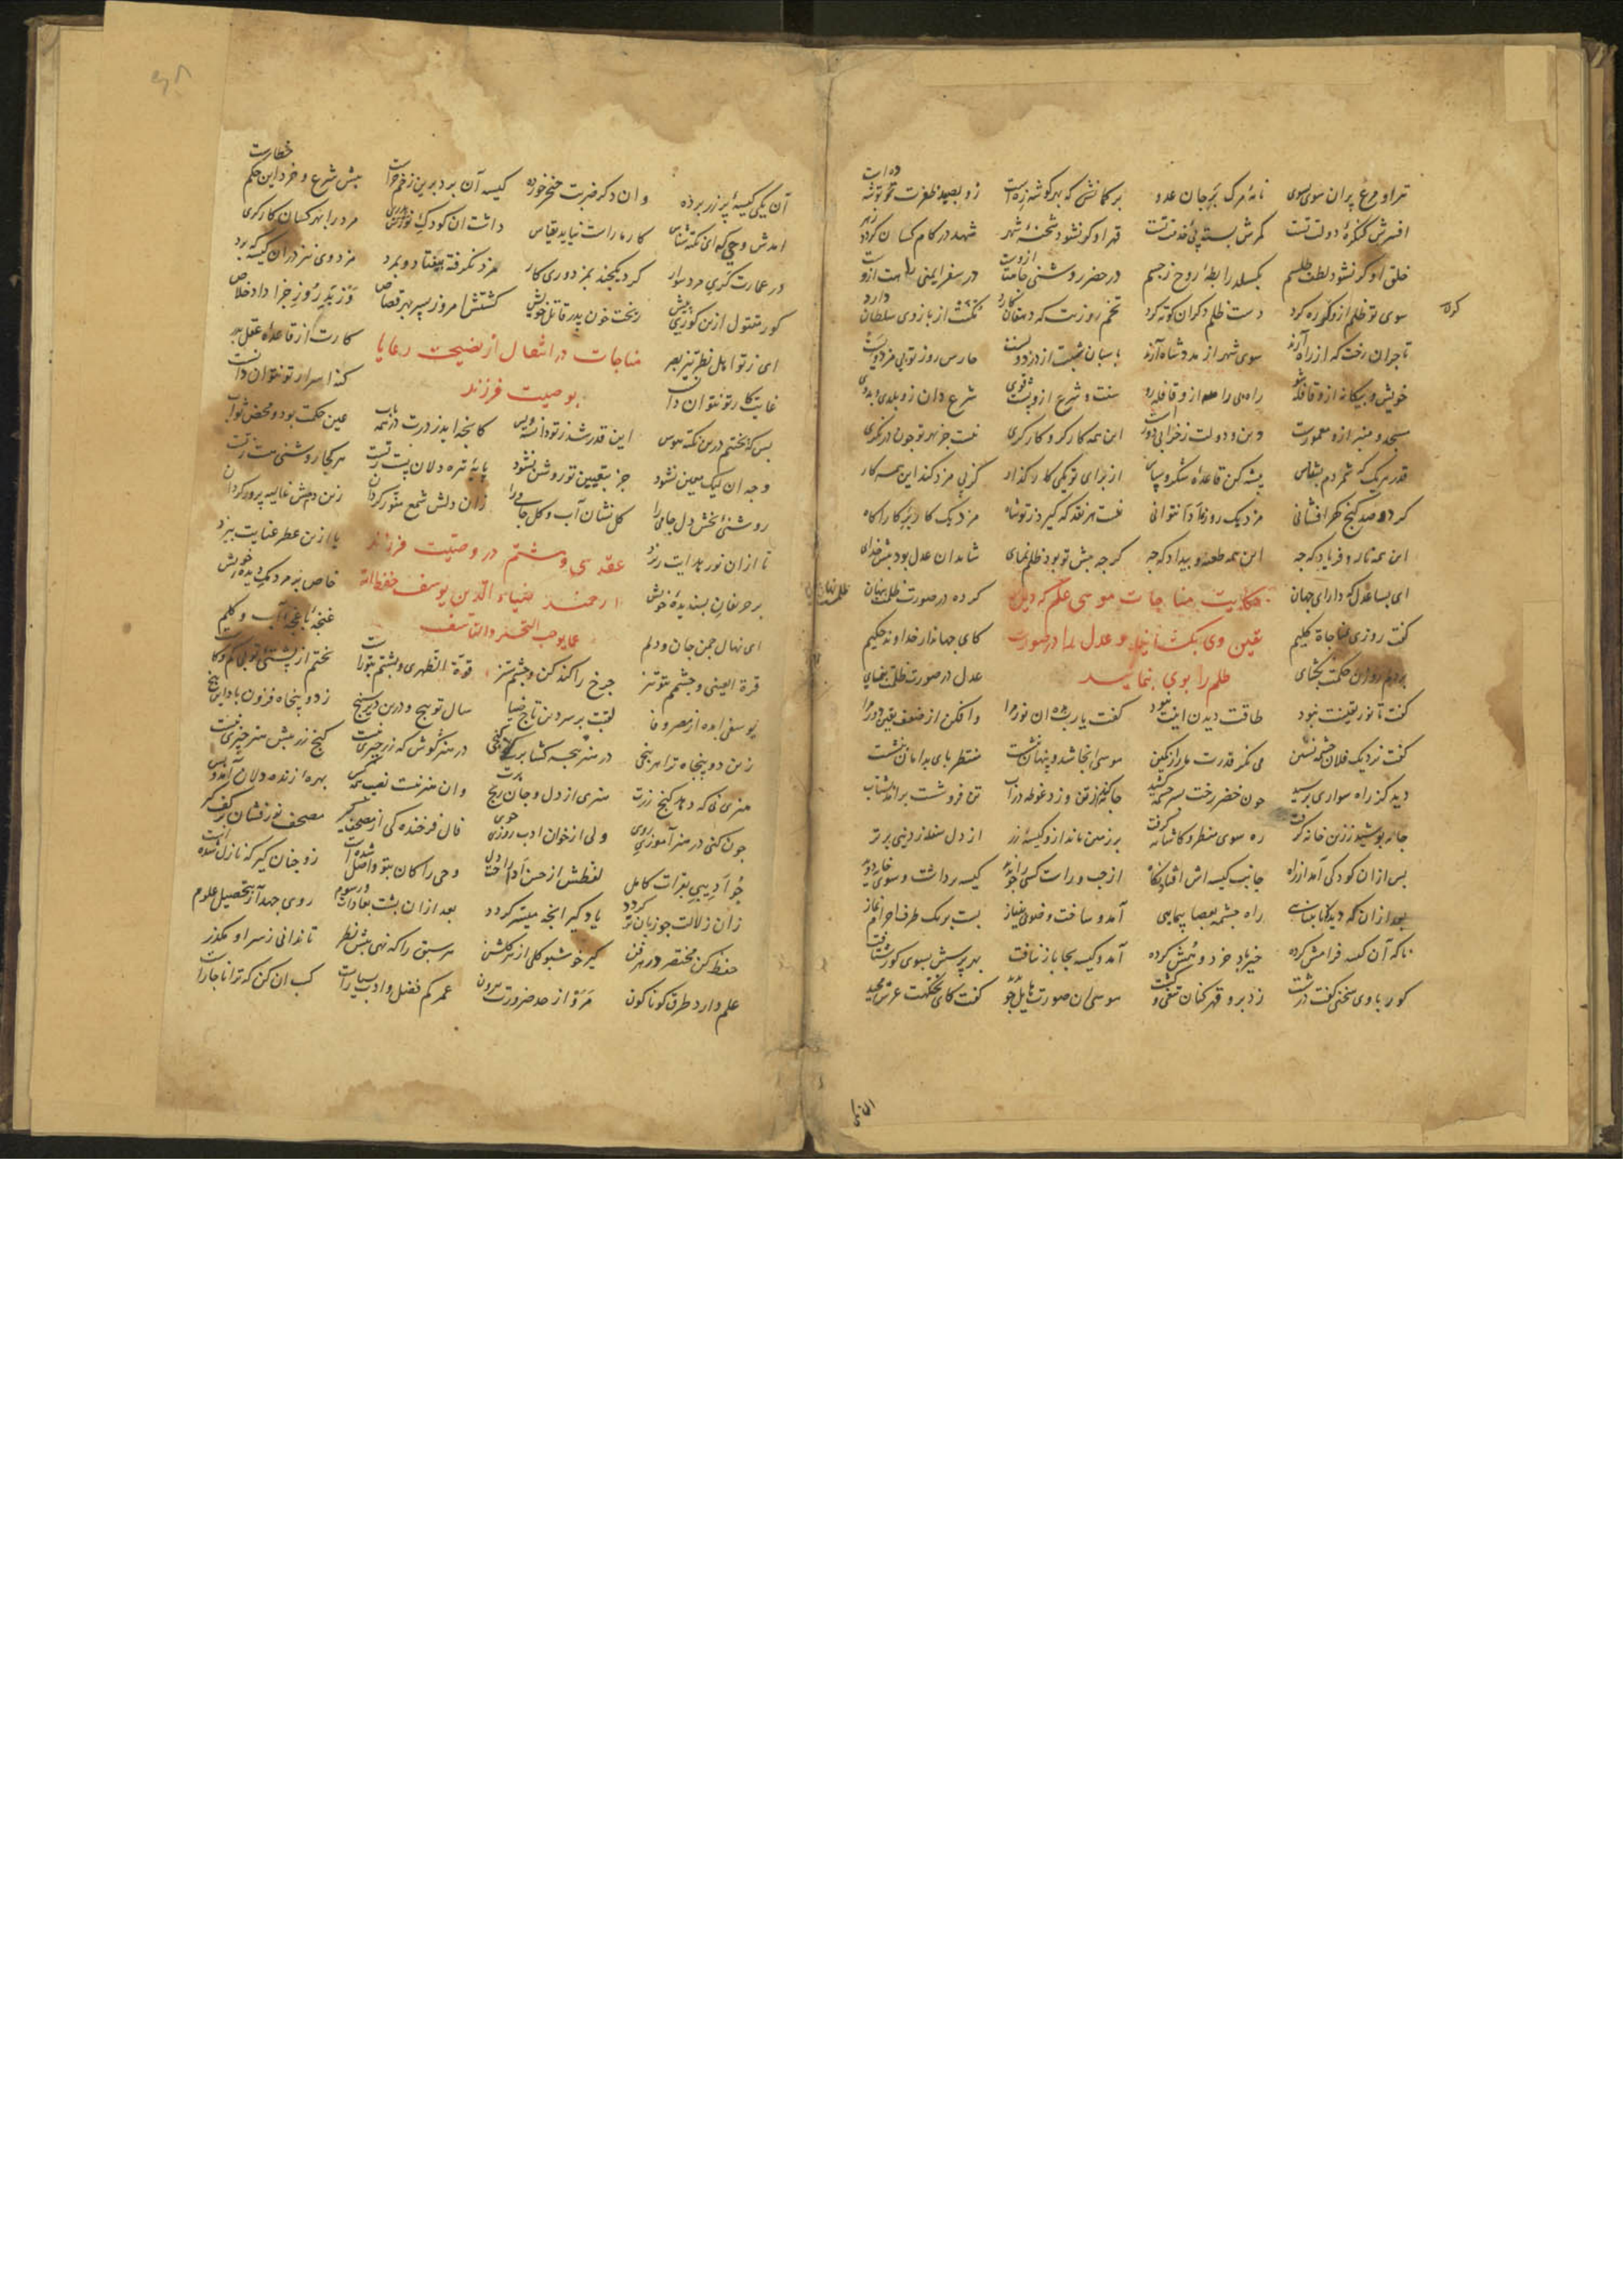 تیر او مرغ پران سوی بسوی نامهٔ مرگ بر جان عدو بر کمانش که بهر گوشه زه است زو بصید ظفرت
افسرش کنگرهٔ دولت تست کمرش بسته پی خدمت تست قهر او گر نشود شحنهٔ شهر شهد در کام کسان گردد زهر
خلق او گر نشود لطف طلسم بگسلد رابطهٔ روح ز جسم در حضر روشنی خانت ازوست در سفر ایمنی راهت ازوست
سوی تو ظلم ازو گم ره کرد دست ظلم دگران کوته کرد تخم روزیت که دهقان کارد
تاجران رخت که از راه آرند سوی شهر از مدد شاه آرند پاسبان شبت از دزد و حارس روز تو بی مزد
خویش و بیگانه ازو قافله شو راهبی راحله ازو قافله رو سنت و شرع ازو پشت قوی شرع دان زو بلدی و بدوی
مسجد و منبر ازو معمورست دین و دولت ز خرابی دورست این همه کارگر و کارگری نیست جز بهر تو چون درنگری
قدر هر یک که شمردم بشناس پیشه کن قاعدهٔ شکر و سپاس از برای تو یکی کارگذار گر پی مزد کند این همه کار
گر دو صد گنج گهر افشانی مزد یک روزه ادا نتوانی نیست هر نقد که گیرد ز تو شاه مزد یک کار بر کارآگاه
این همه ناله و فریاد که چه این همه طعنه و بیداد که چه گرچه پیش تو بود ظلم نمای شاهد آن عدل بود پیش خدای
ای بسا عدل که دارای جهان حکایت مناجات موسی علم که دیل کرده در صورت ظلمت پنهان
گفت روزی بمناجات کلیم کای جهاندار خداوند حکیم
عدل در صورت ظلمت بنمای ظلم را بوی نماید
گفت تا نور یقینت نبود طاقت دیدن اینت نبود گفت یا رب بده آن نور مرا وا فکن از ضعف یقین دور مرا
گفت نزدیک فلان چشمه نشین می نگر قدرت ما را ز کمین موسی آنجا شد و پنهان بنشست منتظر پای بدامان بنشست
دید کز راه سواری برسید چون خضر رخت بسرچشمه کشید جامه کند از تن و زد غوطه در آب تن فرو شست و برآمد بشتاب
جامه پوشید و ز زین خانه گرفت ره سوی منظر و کاشانه گرفت بر زمین ماند ازو کیسهٔ زر از دل سفله ز دینی پرتر
پس ازان کودکی آمد از راه جانب کیسه اش افتاد نگاه از چپ و راست کسی را چو ندید کیسه برداشت و سوی خانه دوید
بعد ازان که دید نابینایی راه چشمه بعصا پیمایی آمد و ساخت وضوی بنیاز بست بر یک طرف احرام نماز
ناگه آن کیسه فرامش کرده خیرباد خرد و هش کرده آمد و کیسه بجا باز نیافت بهر پرسش بسوی کور شتافت
کور با وی سخنی گفت درشت زد برو قهرکنان تیغی و کشت موسی آن صورت هایل چو بدید گفت کای تختگهت عرش مجید
آن یکی کیسهٔ پر زر برده وان دگر ضربت خنجر خورده کیسه آن برد برین زخم چراست پیش شرع و خرد این حکم خطاست
آمدش وحی که ای نکته شناس کار ما راست نیاید بقیاس داشت آن کودک نورس پدری مزد را بهر کسان کارگری
در عمارتگری مرد سوار کرد یکچند بمزدوری کار مزد نگرفته بیفتاد و بمرد مزد وی نیز در آن کیسه ببرد
کور مقتول ازین کوری پیش ریخت خون پدر قاتل خویش کشتش امروز پسر بهر قصاص وز بد روز جزا داد خلاص
ای ز تو اهل نظر تیز بصر مناجات در انتقال از نصیحت رعایا کارت از قاعدهٔ عقل بدر
غایت کار تو نتوان دانست بوصیت فرزند کنه اسرار تو نتوان دانست
بس که پختیم درین نکته هوس این قدر شد ز تو دانسته و بس کانچه آید ز درت در همه باب عین حکمت بود و محض ثواب
وجه آن لیک مبین نشود جز بتعیین تو روشن نشود پایهٔ تیره دلان پست ز تست هر کجا روشنی هست ز تست
روشنی بخش دل جامی را گل نشان آب و گل جامی را زان دلش شمع منور گردان زین دمش غالیه پرور گردان
تا ازان نور هدایت ریزد عقد سی و ششم در وصیت فرزند یا ازین عطر عنایت بیزد
بر حریفان پسندیدهٔ خویش ارجمند ضیاء الدین یوسف حفظه الله خاصه بر مردمک دیدهٔ خویش
ای نهال چمن جان و دلم عما یوجب التحسر والتاسف غنچهٔ باغچهٔ آب و گلم
قرة العینی و چشمم بتو تیز چرخ را کند کن و چشم ستیز قوة الظهری و پشتم بتو راست
یوسفی آمده از مصر وفا لقبت بر سر دین تاج ضیا سال تو پنج و درین دیر سپنج زد و پنجاه فزون باد این پنج
زین دو پنجاه ترا هر پنجی در هنر پنجه گشا بر گنجی در هنر کوش که زر چیزی نیست گنج زر پیش هنر چیزی نیست
هنری نی که دهد گنج زرت هنری از دل و جان رنج برت وان هنر نیست نصیب همه کس بهره ازنده دلان آمد و بس
چون کنی در هنر آموزی روی ولی از خوان ادب روزی جوی فال فرخنده کن از مصحف گیر مصحف نور فشان بر کف گیر
جو ادیبی بقرائت کامل لفظش از حسن ادا راحت دل وحی را کان بتو واصل شده است زو چنان گیر که نازل شده است
زان زلالت چو زبان تر گردد یادگیر آنچه میسر گردد بعد ازان پشت بعادات و رسوم روی جهد آر بتحصیل علوم
حفظ کن مختصر در هر فن گیر خوشبو گلی از هر گلشن هر سبق را که نهی پیش نظر تا ندانی ز سر او مگذر
علم دارد طرق گوناگون مرو از حد ضرورت بیرون عمر کم فضل و ادب بسیارست کسب آن کن که ترا ناچارست